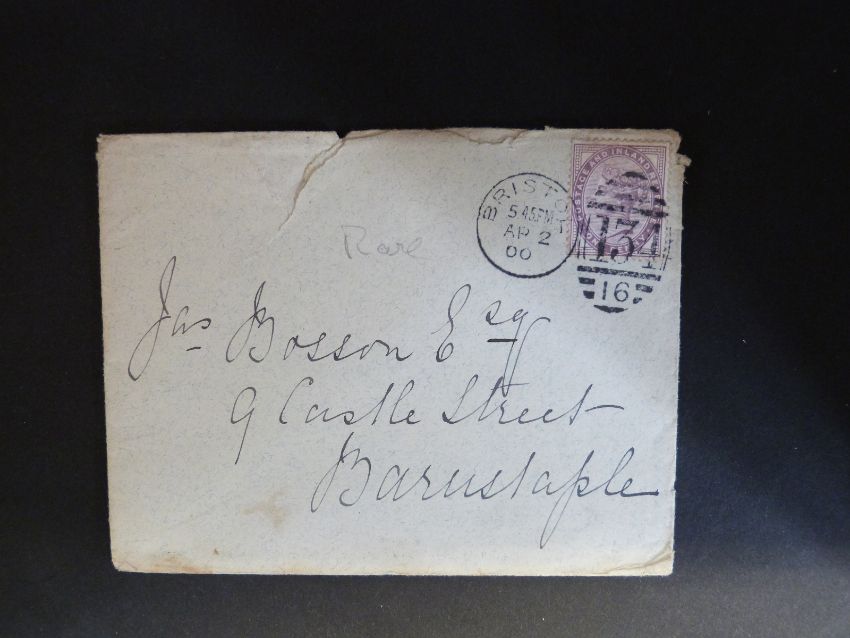 BRISTOL
5 45PM
AP 2
00
POSTAGE AND INLAND
134
16
Rare
Jas Bosson Esq
9 Castle Street
Barnstaple